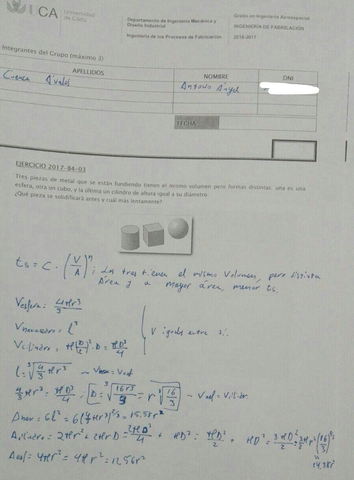 UCA
Universidad de Cádiz
Departamento de Ingeniería Mecánica y Diseño Industrial
Ingeniería de los Procesos de Fabricación
Grado en Ingeniería Aeroespacial
INGENIERÍA DE FABRICACIÓN
2016-2017
Integrantes del Grupo (máximo 3)
APELLIDOS NOMBRE DNI
Cuenca Antonio Ángel
FECHA
EJERCICIO 2017-B4-03
Tres piezas de metal que se están fundiendo tienen el mismo volumen pero formas distintas: una es una
esfera, otra un cubo, y la última un cilindro de altura igual a su diámetro.
¿Qué pieza se solidificará antes y cuál más lentamente?
ts = C · (V/A)^n ; Los tres tienen el mismo volumen, pero distinta
Área y a mayor área, menor ts.
Vesfera = 4πr³/3
l³
Vcilindro = π(D/2)² · D = πD³/4
V iguales entre sí.
l = ∛(4/3 πr³)
4/3 πr³ = πD³/4 ; D = ∛(16r³/3) = r ∛(16/3)
= 6l² = 6(4/3 πr³)^2/3 = 15.58r²
Acilindro = 2πr² + 2πrD = 2πD²/4 + πD² = πD²/2 + πD² = 3πD²/2 = 3/2 πr² (16/3)^2/3
14.38r²
Aesf = 4πr² = 4πr² = 12,56r²